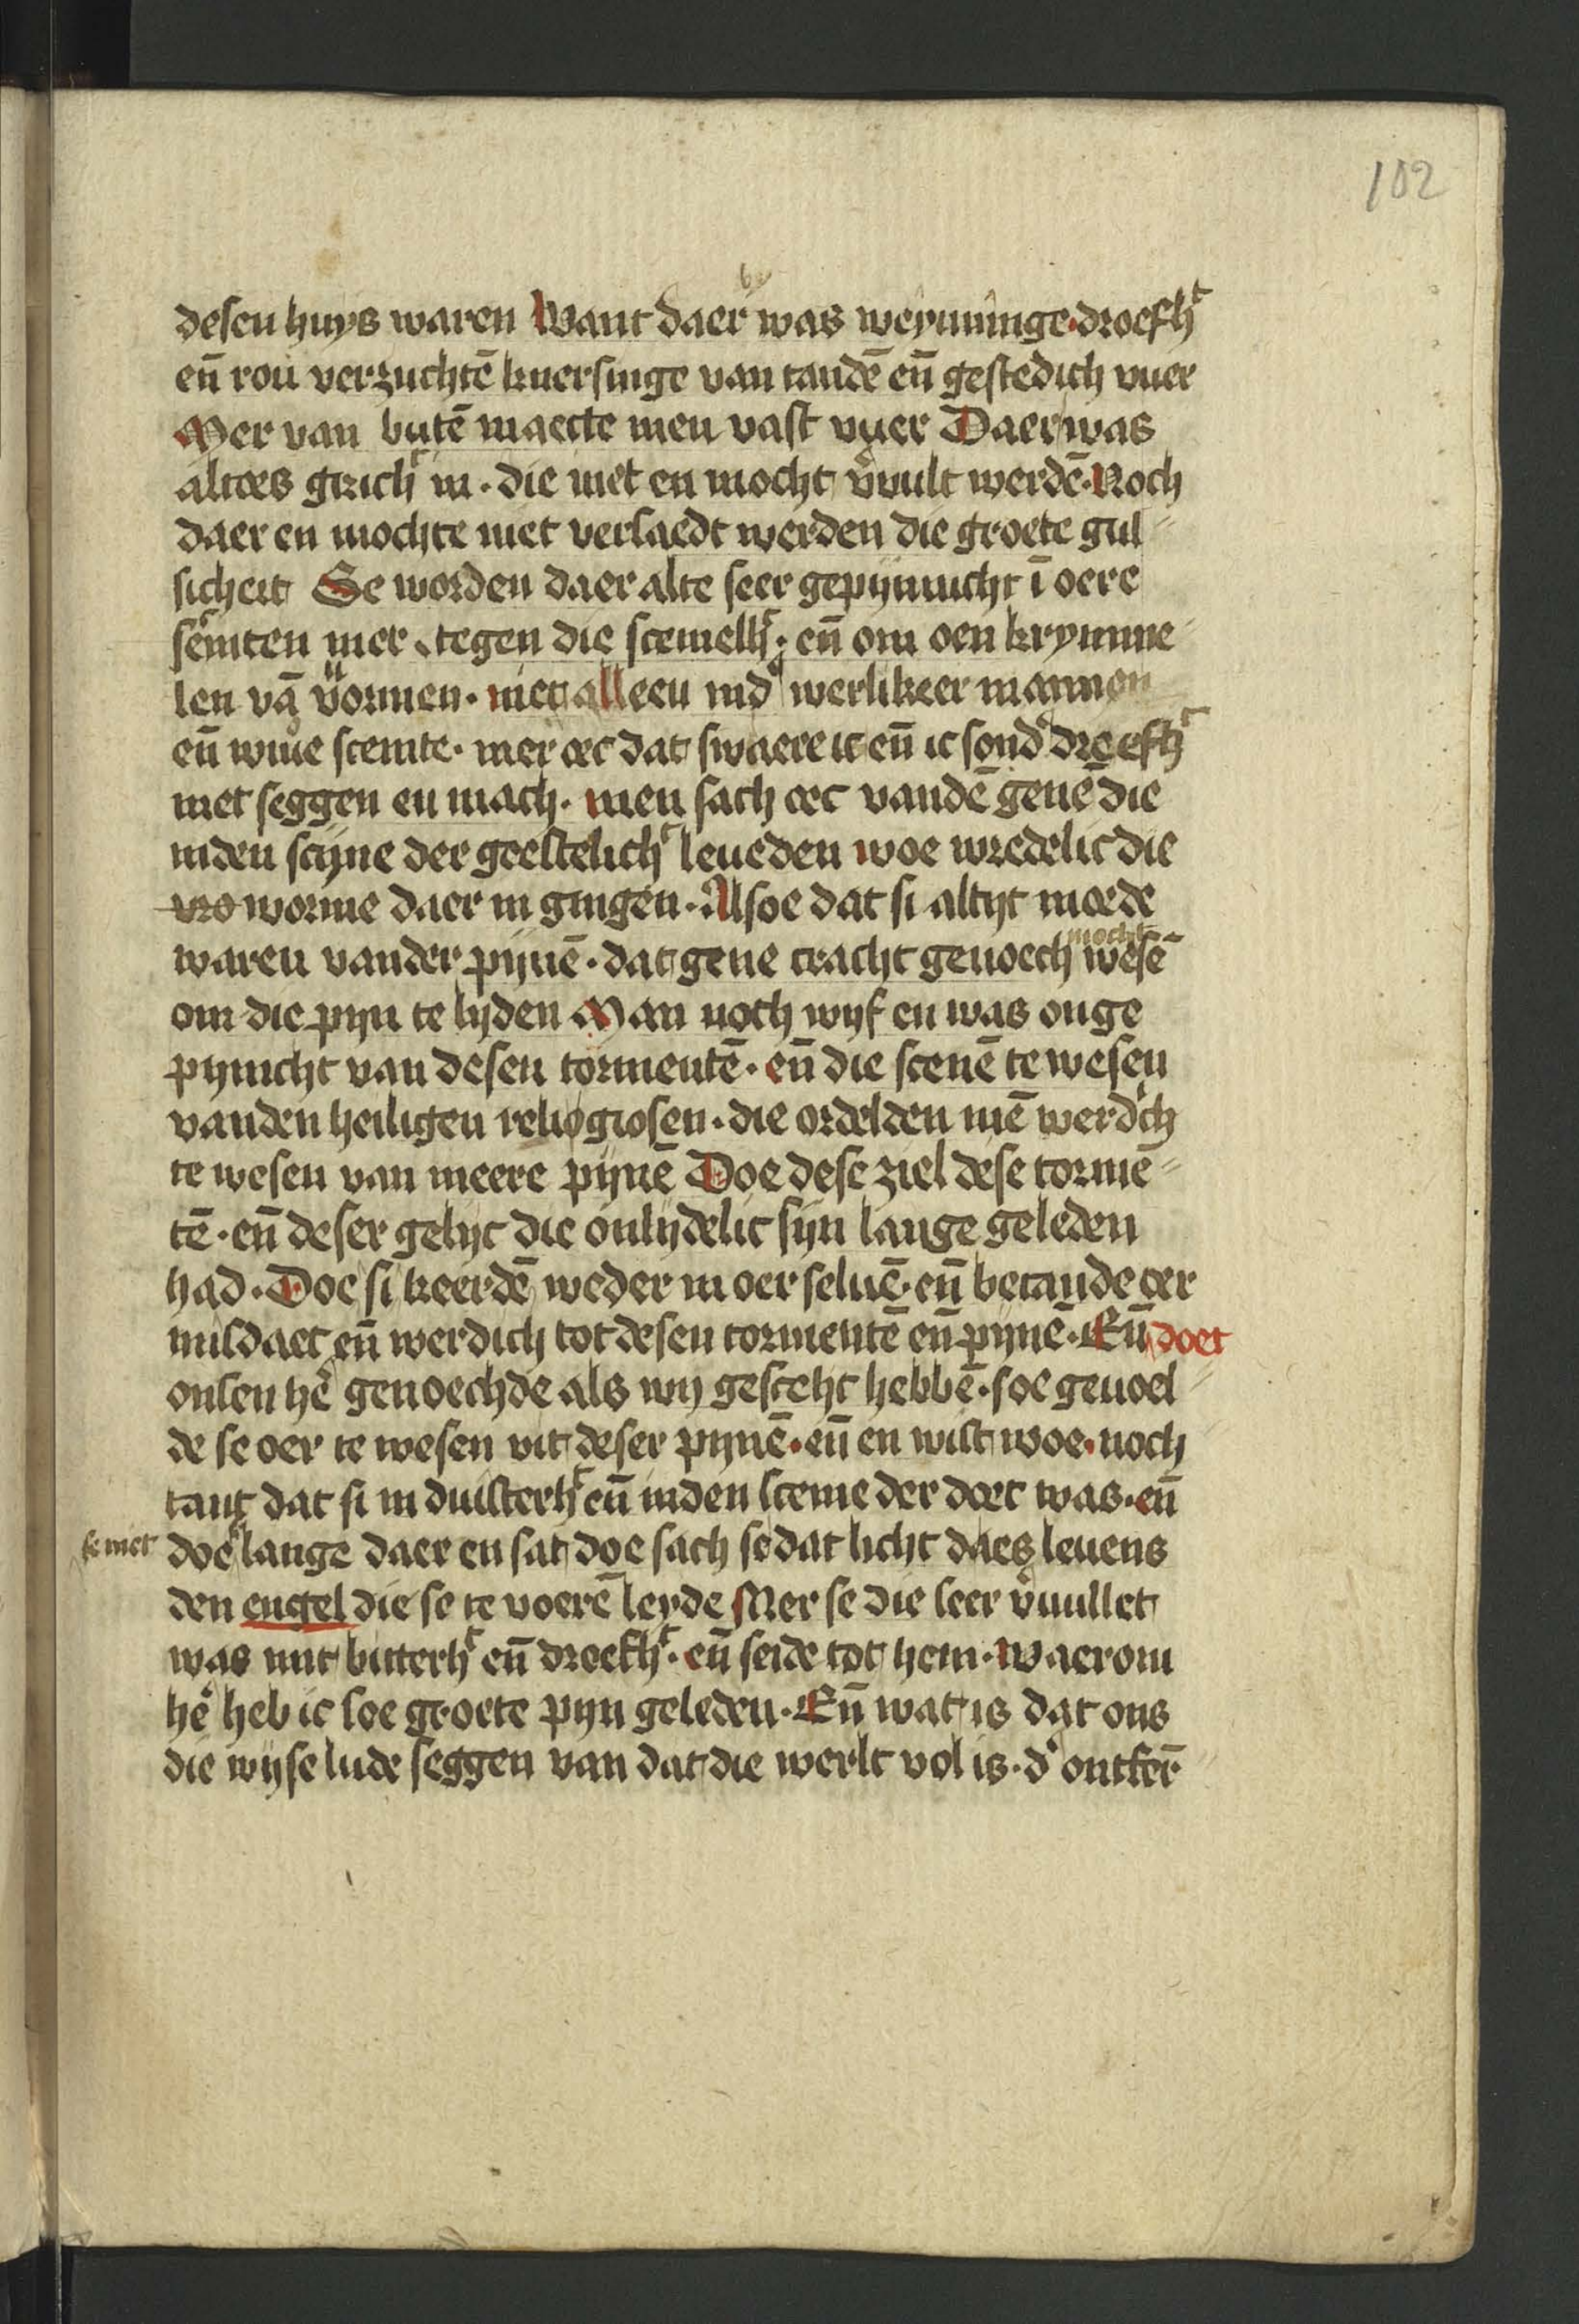 102
desen huys waren Want daer was weyninge · droefhᵗ
eñ rou verzuchtē knersinge van tandē eñ gestedich vuer
Mer van butē maecte men vast vuer Daer was
altoes girichᵗ in · die niet en mocht v̉uult werdē · Noch
daer en mochte niet versaedt werden die groete gul⸗
sicheit Se worden daer alte seer gepijnnicht ī oere
tegen die scemelhᵗ · eñ om oen krymme⸗
len vā vormen · niet alleen ind̉ werlikeer mannen
eñ wiue scemte · mer oec dat swaere is eñ ic sond̉ droefhᵗ
niet seggen en mach · men sach oec vandē genē die
inden scijne der geestelichᵗ leueden woe wredelic die
wo worme daer in gingen · Alsoe dat si altijt moede
waren vander pijnē · dat gene cracht genoech mocht wesē
om die pijn te lyden Man noch wijf en was onge
pynicht van desen tormentē · eñ die scenē te wesen
vanden heiligen religiosen · die ordelden mē werdich
te wesen van meere pijnē Doe dese ziel dese tormē⸗
tē · eñ deser gelijc die onlijdelic sijn lange geleden
had · Doe si keerdē weder in oer seluē · eñ betande oer
misdaet eñ werdich tot desen tormentē eñ pijnē · Eñ doet
onsen hē genoechde als wij gesecht hebbē · soe geuoel⸗
de se oer te wesen vit deser pijnē · eñ en wist woe · noch
tant dat si in duisterhᵗ eñ inden sceme der doet was · eñ
doe se niet lange daer en sat doe sach se dat licht daes leuens
den engel die se te voerē leyde Mer se die seer v̉uullet
was mit bitterhᵗ eñ droefhᵗ · eñ seide tot hem · Waerom
hē heb ic soe groete pijn geleden · Eñ wat is dat ons
die wijse lude seggen van dat die werlt vol is · d̉ ontfer̄⸗